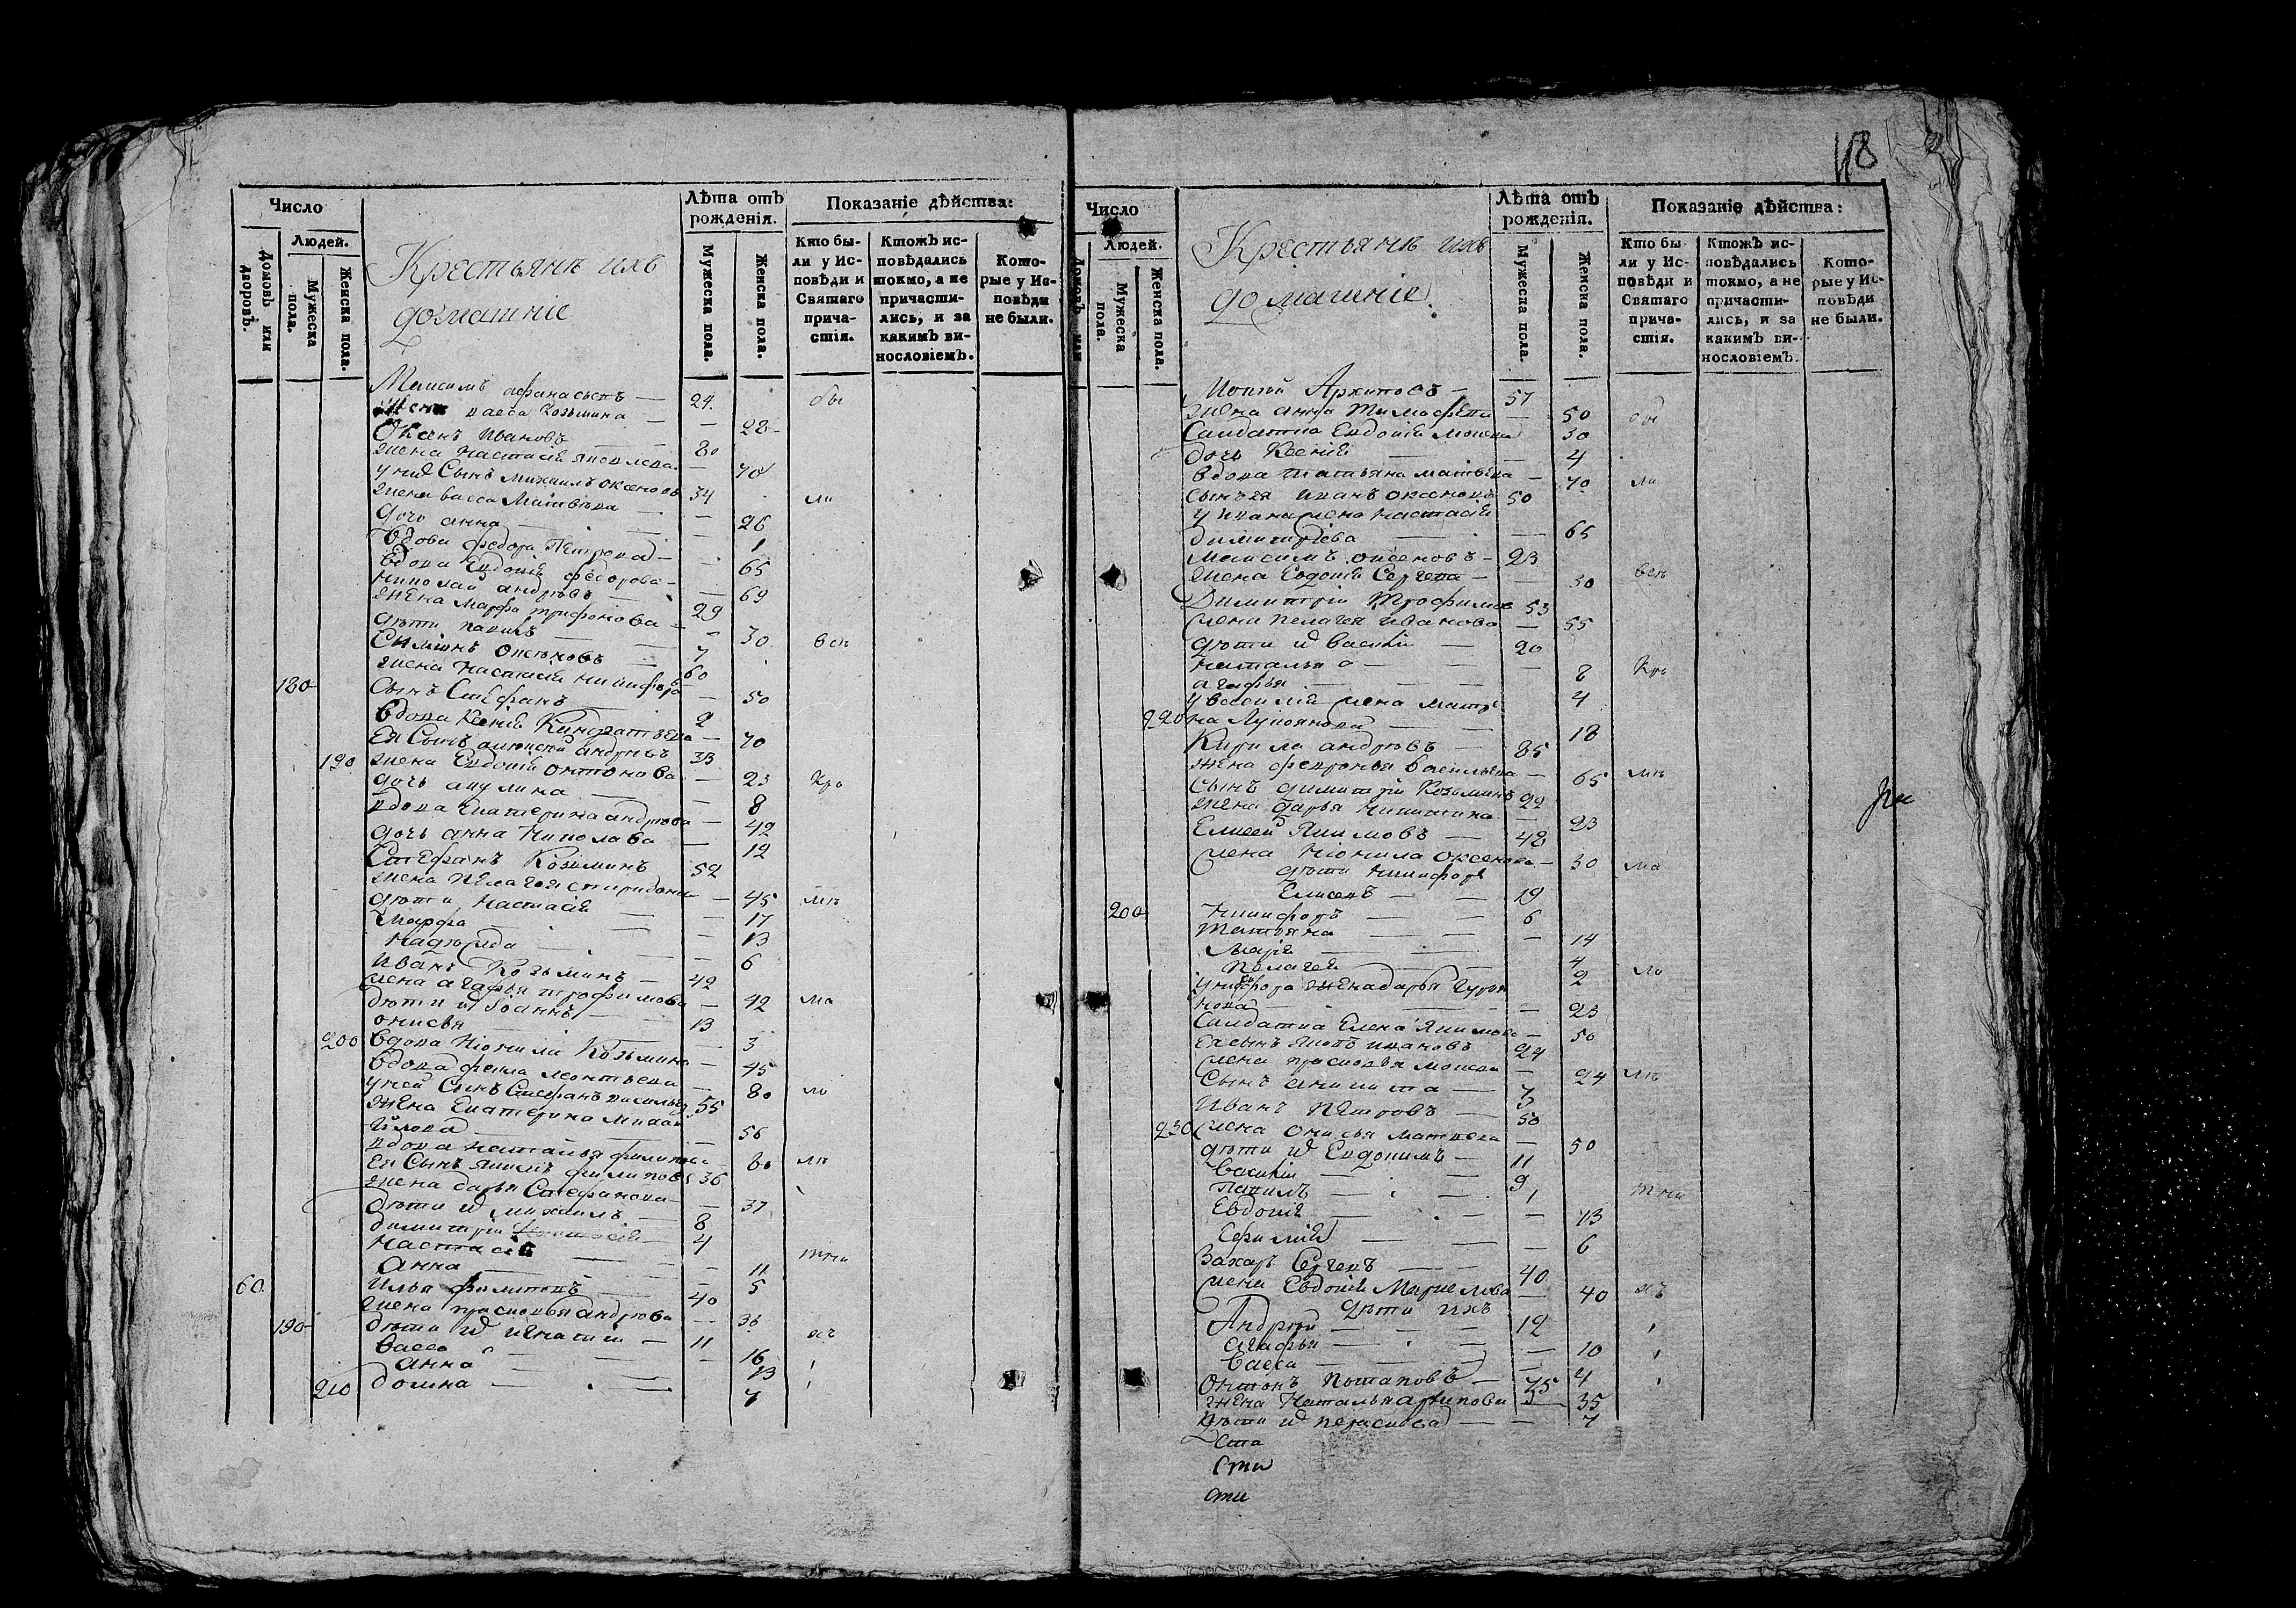 118
Число
Людей.
Домовъ или дворовъ.
Мужеска пола.
Женска пола.
Крестьянѣ ихъ
домашніе
Лѣта отъ рожденія.
Мужеска пола.
Женска пола.
Показаніе дѣйства:
Кто бы-
ли у Ис-
повѣди и
Святаго
прича-
стія.
Ктожъ ис-
повѣдались
токмо, а не
причасти-
лись, и за
какимъ ви-
нословіемъ.
Кото-
рые у Ис-
повѣди
не были.
Максимъ афанасьевъ — 24.
жена васса Козьмина — 28 бы
Оксенъ Ивановъ — 80
жена Настасія яковлева — 70
у нихъ Сынъ михаилъ оксеновъ 34
жена васса Матвѣва — 26 ли
дочь анна — 1
вдова федора Петрова — 65
вдова Евдокія федорова — 69
николай андрѣвъ — 29
жена марфа трифонова — 30 всѣ
дѣти — 7
Симіонъ оксеновъ — 60
жена Настасія — 50
180 Сынъ Стефанъ — 2
вдова Ксенія Киндратьева — 70
Ея Сынъ алексѣй андрѣвъ 33
190 жена Евдокія онтонова — 23
дочь акулина — 8 Кро
вдова Екатерина андрѣва — 42
дочь анна Николаева — 12
Стефанъ Козьминъ 52
жена пелагея спиридонова — 45 мѣ
дѣти Настасія — 17
Марфа — 13
надѣжда — 6
Иванъ Козьминъ — 42
жена агафья трофимова — 42 ма
дѣти их Іоаннъ — 13
онисья — 3
200 вдова Неонила Козьмина — 45
вдова фекла леонтьева — 80 ло
у ней Сынъ Стефанъ васильев 55
жена Екатерина Михаи
йлова — 56
вдова наталья филипова — 60 лѣ
Ея Сынъ якимъ филиповъ 36
жена дарья Стефанова — 37
дѣти их михаилъ — 8
димитрій — 4
Настасія — 11 тни
анна — 5
60 Илья филиповъ — 40
жена прасковья андрѣва — 36
190 дѣти их игнатій — 11 хъ
васса — 16
анна — 13
210 домна — 7
Число
Людей.
Домовъ или
Мужеска пола.
Женска пола.
Крестьянѣ ихъ
домашніе
Лѣта отъ рожденія.
Мужеска пола.
Женска пола.
Показаніе дѣйства:
Кто бы-
ли у Ис-
повѣди и
Святаго
прича-
стія.
Ктожъ ис-
повѣдались
токмо, а не
причасти-
лись, и за
какимъ ви-
нословіемъ.
Кото-
рые у Ис-
повѣди
не были.
Архиповъ — 57
жена анна Тимофѣва — 50 бы
Салдатка Евдокія — 30
дочь Ксенія — 4
вдова татьяна матвѣва — 70 ли
Сынъ ея иванъ оксеновъ 50
у ивана жена настасія
димитріева — 65
максимъ оксеновъ — 23
жена Евдокія Сергева — 30 всѣ
Димитрій Трофимов 53
жена пелагея иванова — 55
дѣти их василій — 20
наталья — 8 Кро
агафья — 4
у василія жена матре
220 на Лукоянова — 18
Кирила андрѣвъ — 85
жена февронья васильева — 65 мѣ
Сынъ димитрій Козьминъ 22
жена дарья Никитина — 23
Елисей Якимовъ — 48
жена Неонила оксенова — 30 ма
дѣти никифоръ
Елисевъ — 19
200 никифоръ — 6
татьяна — 14
марія — 4
пелагея — 2 ло
у никифора жена дарья
нова — 23
Салдатка Елена Якимова — 50
Ея сынъ ивановъ 24
жена прасковья — 24 лѣ
Сынъ никита — 7
Иванъ петровъ — 50
230 жена онисья матвева — 50
дѣти их Евдокимъ — 11
василій — 9
— 1 тни
Евдокія — 13
Ефимія — 6
Захаръ Сергевъ — 40
жена Евдокія — 40 хъ
дѣти ихъ
Андрѣй — 12
агафья — 10
васса — 4
онтонъ потаповъ — 75
жена Наталья архипова — 35
дѣти их — 7
ста
сти
сти